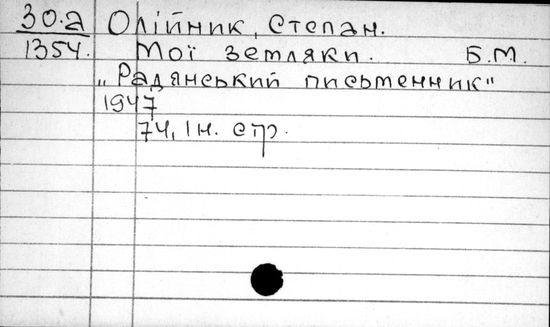 30.а Олійник, Степан.
1354. Мої земляки. Б.М.
„Радянський письменник"
1947
74, Ін. стр.